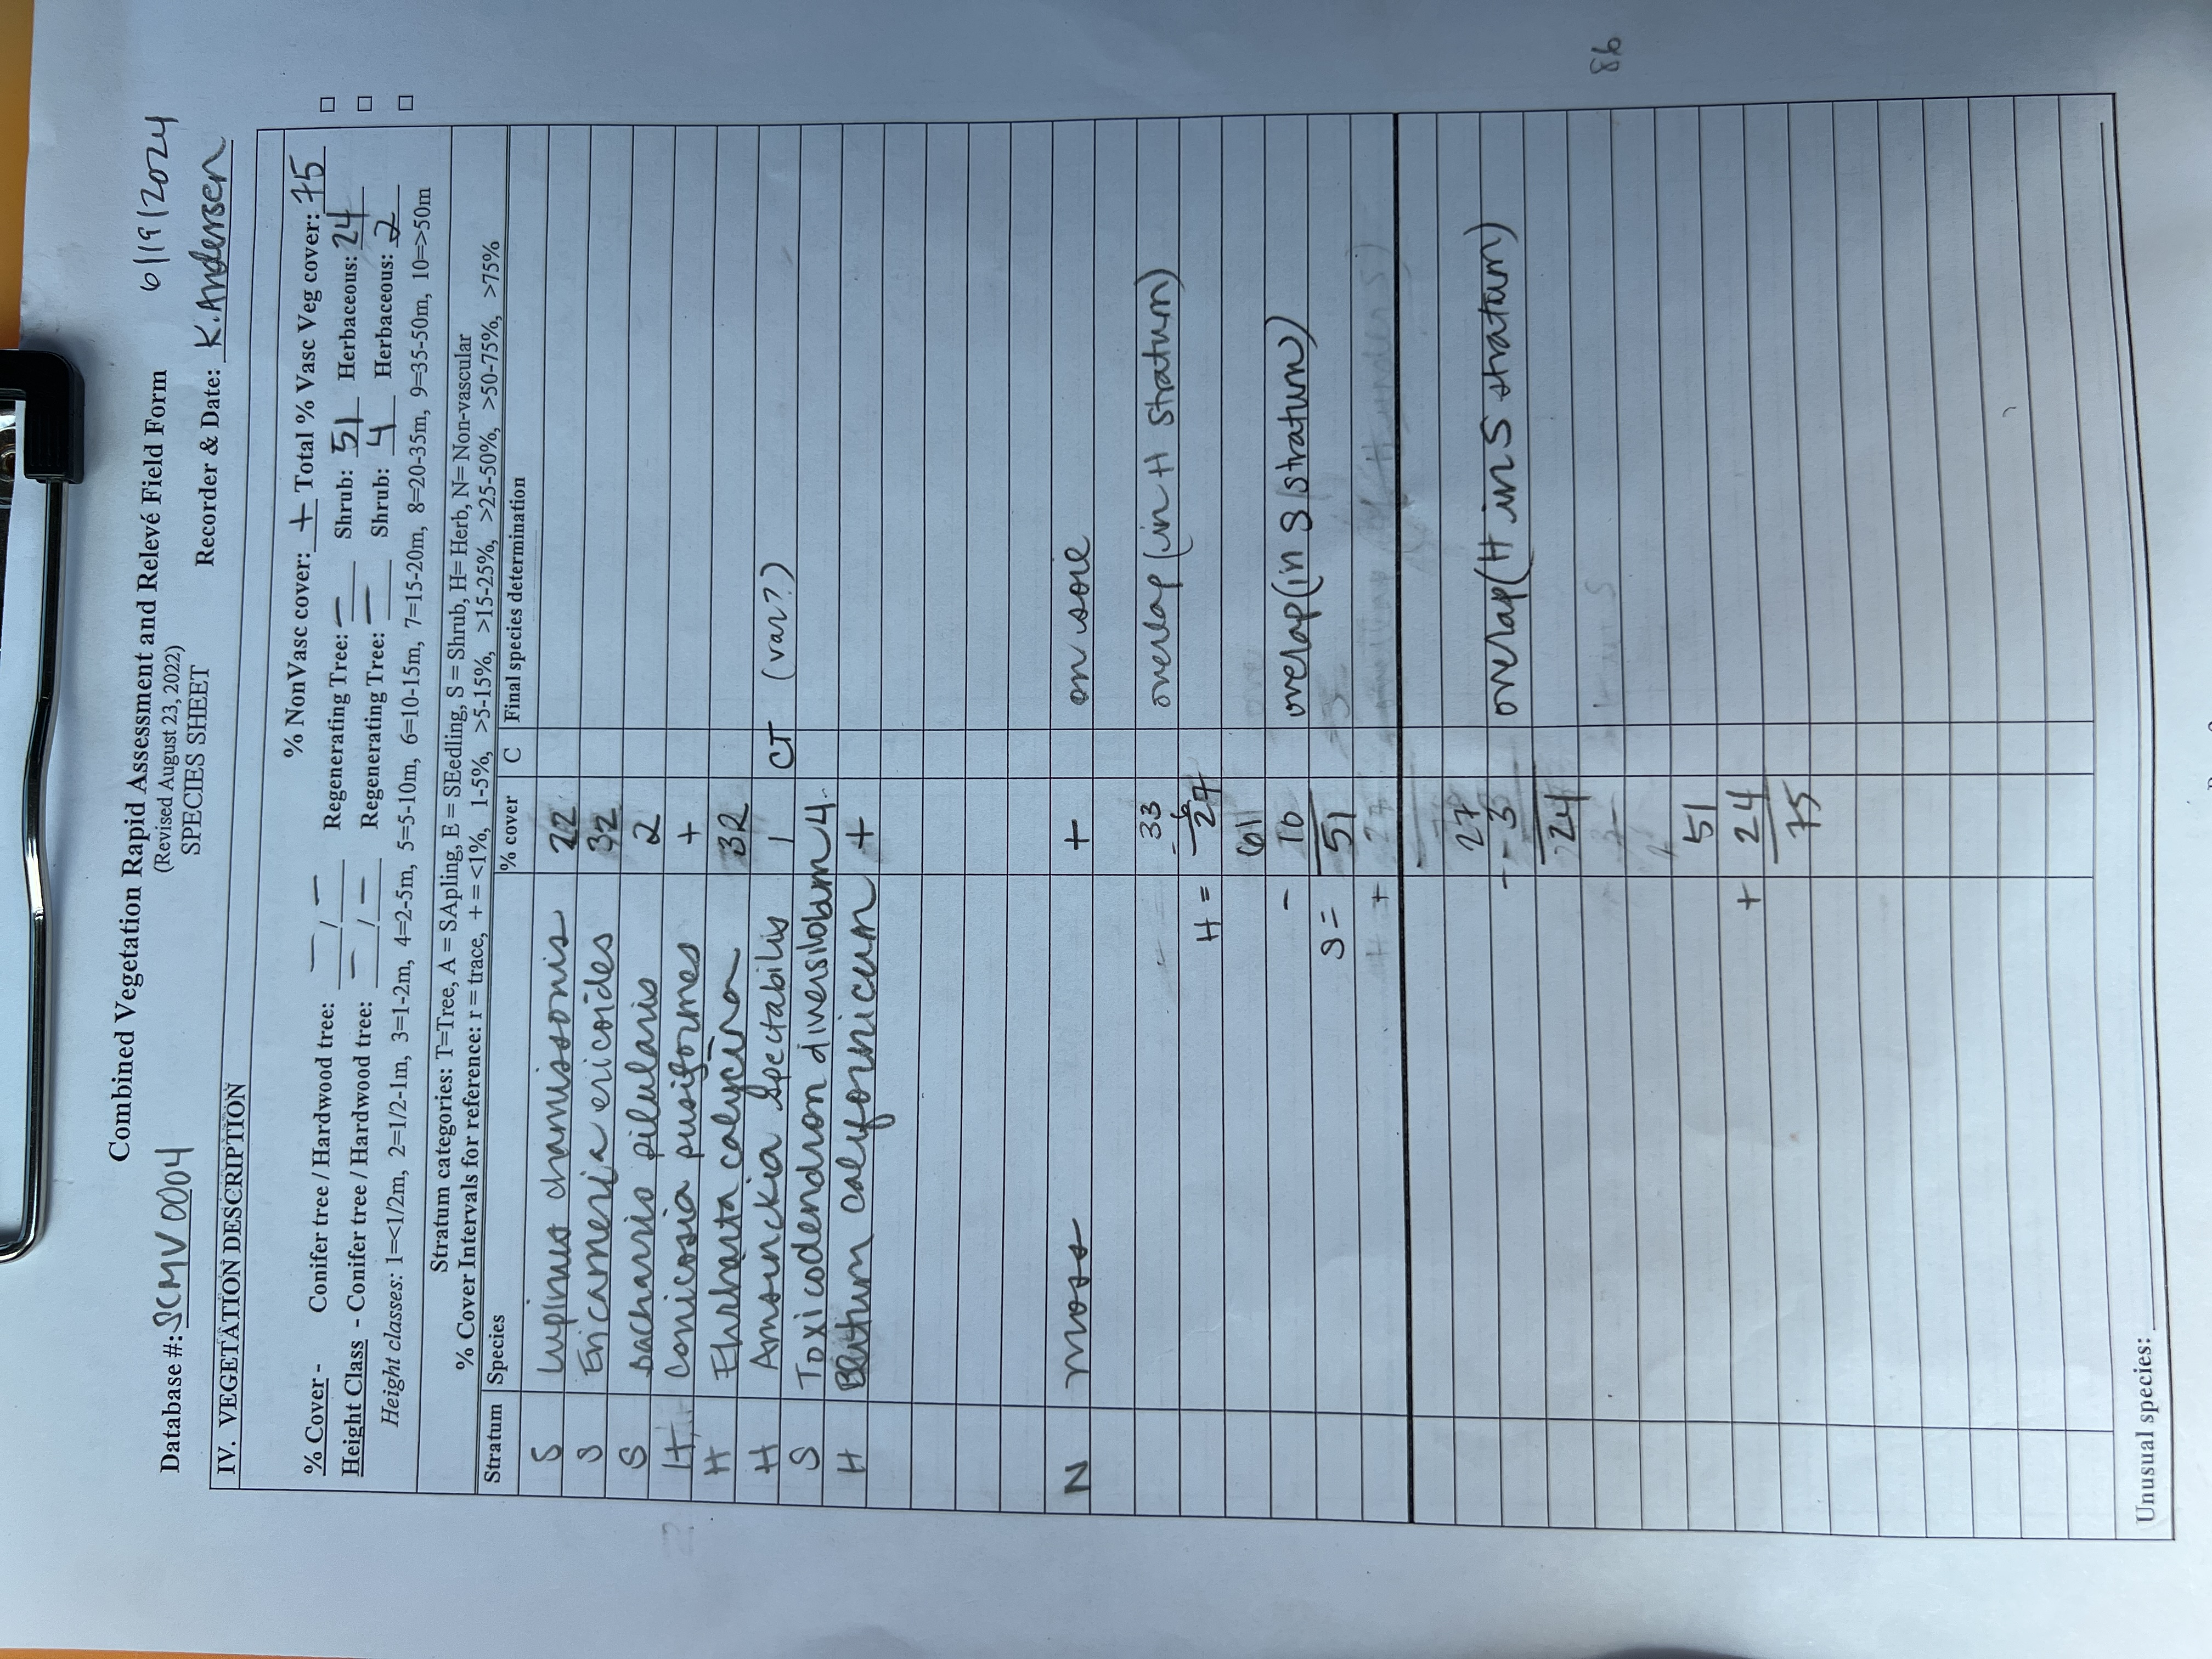 Combined Vegetation Rapid Assessment and Relevé Field Form
(Revised August 23, 2022)
SPECIES SHEET
6/19/2024
Database #: SCMV0004 Recorder & Date: K. Andersen
IV. VEGETATION DESCRIPTION
% NonVasc cover: + Total % Vasc Veg cover: 75
% Cover - Conifer tree / Hardwood tree: — / — Regenerating Tree: — Shrub: 51 Herbaceous: 24
Height Class - Conifer tree / Hardwood tree: — / — Regenerating Tree: — Shrub: 4 Herbaceous: 2
Height classes: 1=<1/2m, 2=1/2-1m, 3=1-2m, 4=2-5m, 5=5-10m, 6=10-15m, 7=15-20m, 8=20-35m, 9=35-50m, 10=>50m
Stratum categories: T=Tree, A = SApling, E = SEedling, S = Shrub, H= Herb, N= Non-vascular
% Cover Intervals for reference: r = trace, + = <1%, 1-5%, >5-15%, >15-25%, >25-50%, >50-75%, >75%
Stratum Species % cover C Final species determination
S Lupinus chamissonis 22
S Ericameria ericoides 32
S Baccharis pilularis 2
H Conicosia pusiformes +
H Ehrharta calycina 32
H Amsinckia spectabilis 1 CT (var?)
S Toxicodendron diversilobum 4
H californicum +
N moss + on soil
33 overlap (in H stratum)
- 6
H = 27
61
- 10 overlap (in S stratum)
S = 51
27
- 3 overlap (H in S stratum)
24
51
+ 24
75
Unusual species:
86